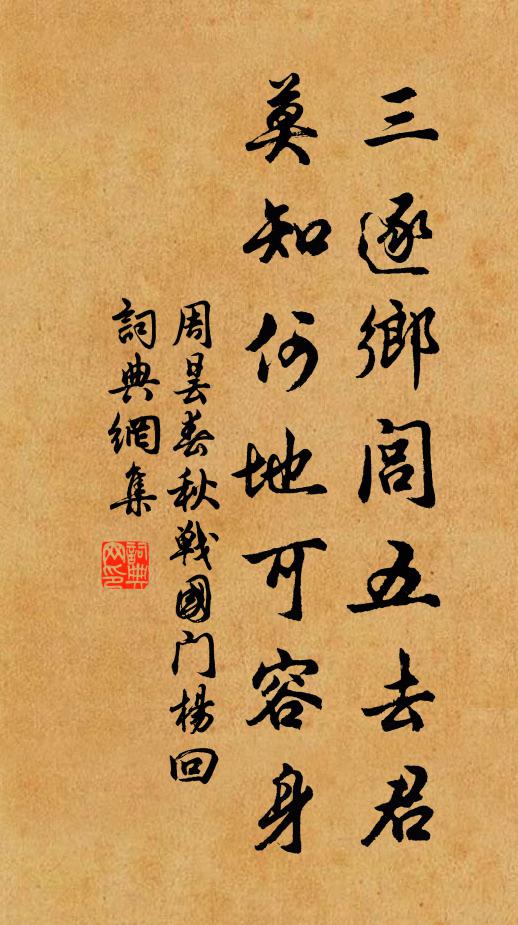 三逐鄉閭五去君
莫知何地可容身
周昙春秋戰國门楊回
詞典網集
詞典
网印